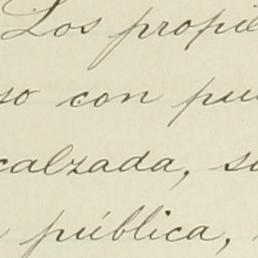 Los propie
so con pu
calzada, s
pública,